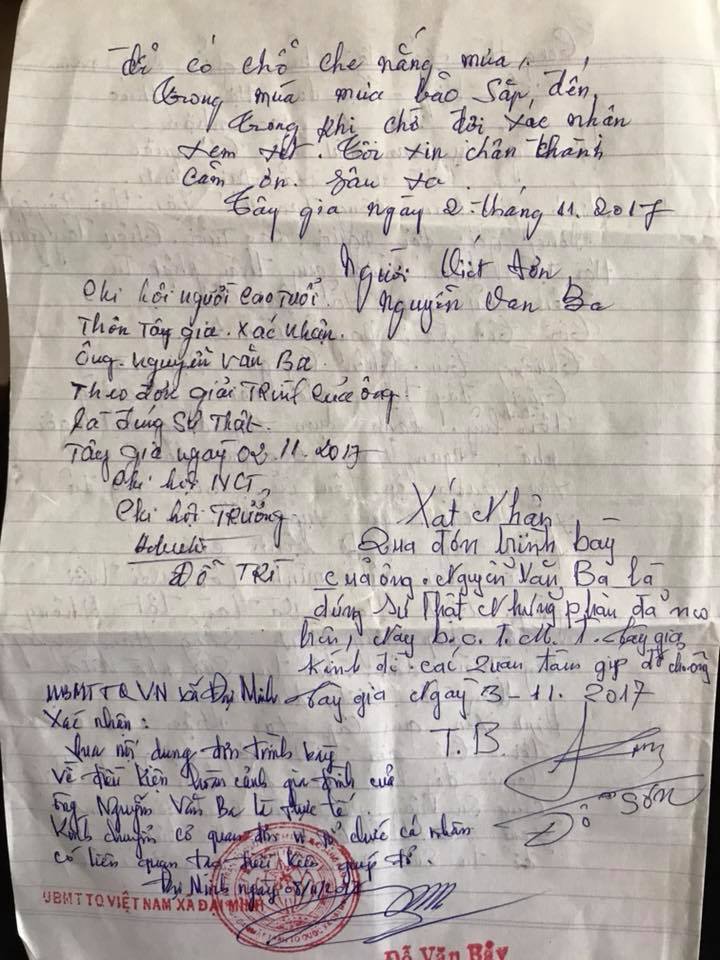 để có chổ che nắng mưa,
trong mùa mưa bảo sắp đến
trong khi chờ đợi xác nhân
xem xét. Tôi xin chân thành
cảm ơn. sâu xa.
Tây gia ngày 2-tháng 11.2017
Người Viết đơn
Nguyễn Van Ba
Chi hội người Cao Tuổi.
Thôn Tây gia. Xác nhân.
Ông. Nguyễn Văn Ba
Theo đơn giải Trình Của ông.
là đúng Sự Thât.
Tây gia ngày 02.11.2017
Chi hội NCT
Chi hội TRƯỞng
ĐỖ TRÍ
Xát Nhân
Qua đơn trình bày
của ông. Nguyễn Văn Ba là
đúng sự thật Những phần đả nêu
trên, Nay b.c.T.M.T. tây gia
kính đề. các Quan tâm giúp đở
Tây gia Ngày 3-11.2017
T.B.
Đỗ Sơn
UBMTTQVN xã Đại Minh
Xác nhân:
nội dung đơn trình bày
về điều kiện hoàn cảnh gia đình của
ông Nguyễn Văn Ba là thực tế
Kính chuyển cơ quan đơn vị tổ chức cá nhân
có liên quan tạo điều kiện giúp đở.
Đại Minh ngày 08/11/2017
UBMTTQ VIỆT NAM XÃ ĐẠI MINH
Đỗ Văn Bảy